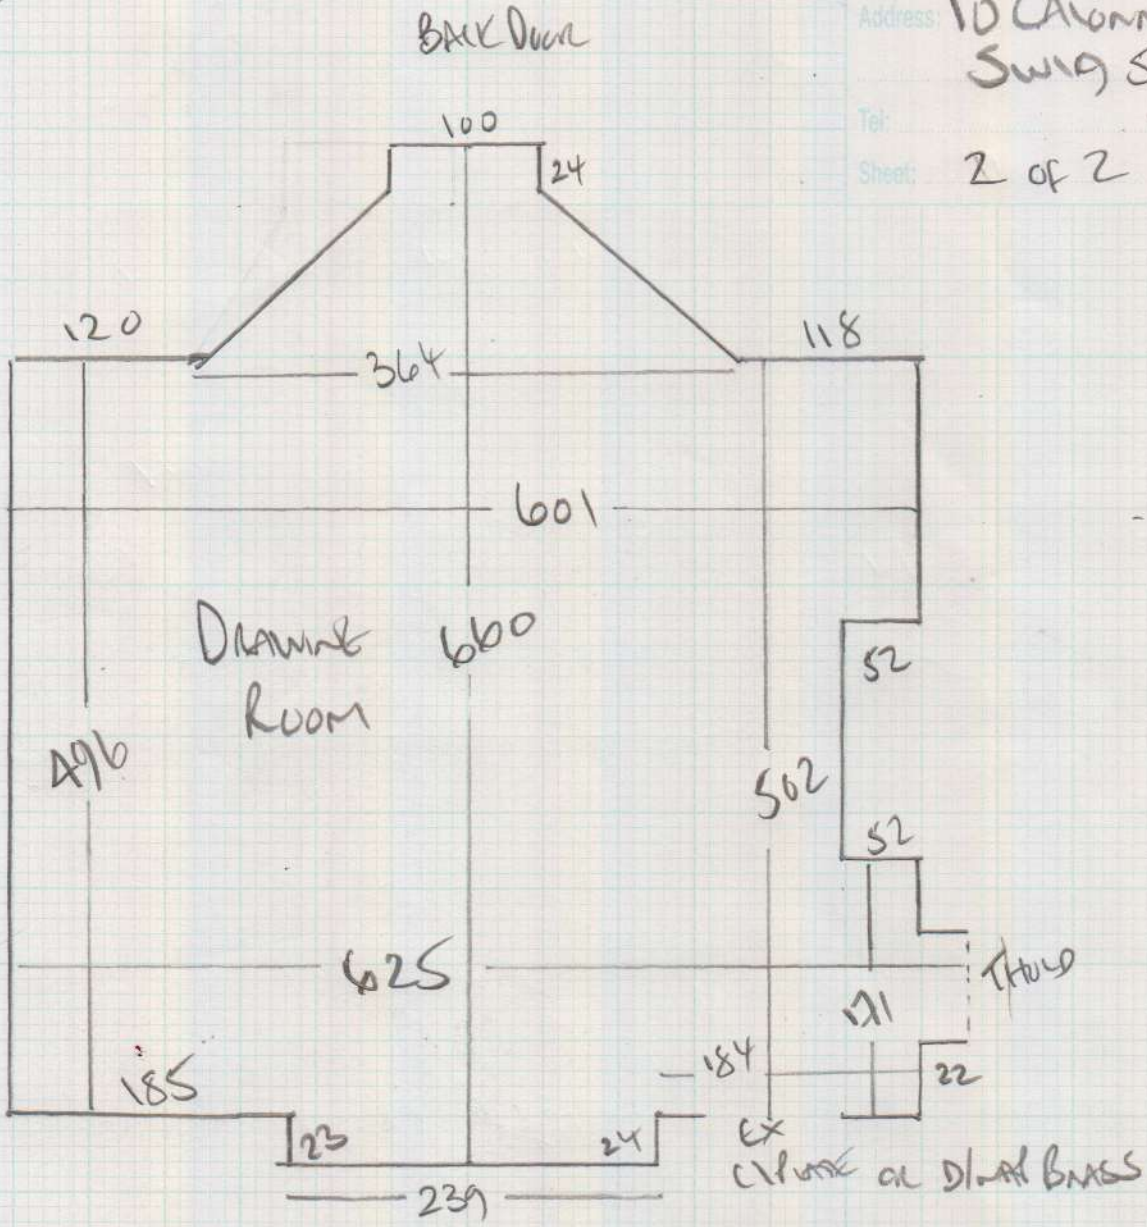 BACK DOOR
Address: 10
Tel:
Sheet: 2 of 2
100
24
120
118
364
601
DRAWING
ROOM
660
52
496
502
52
625
T/HOLD
171
184
22
185
23
24
EX
OR D/MAT BRASS
239